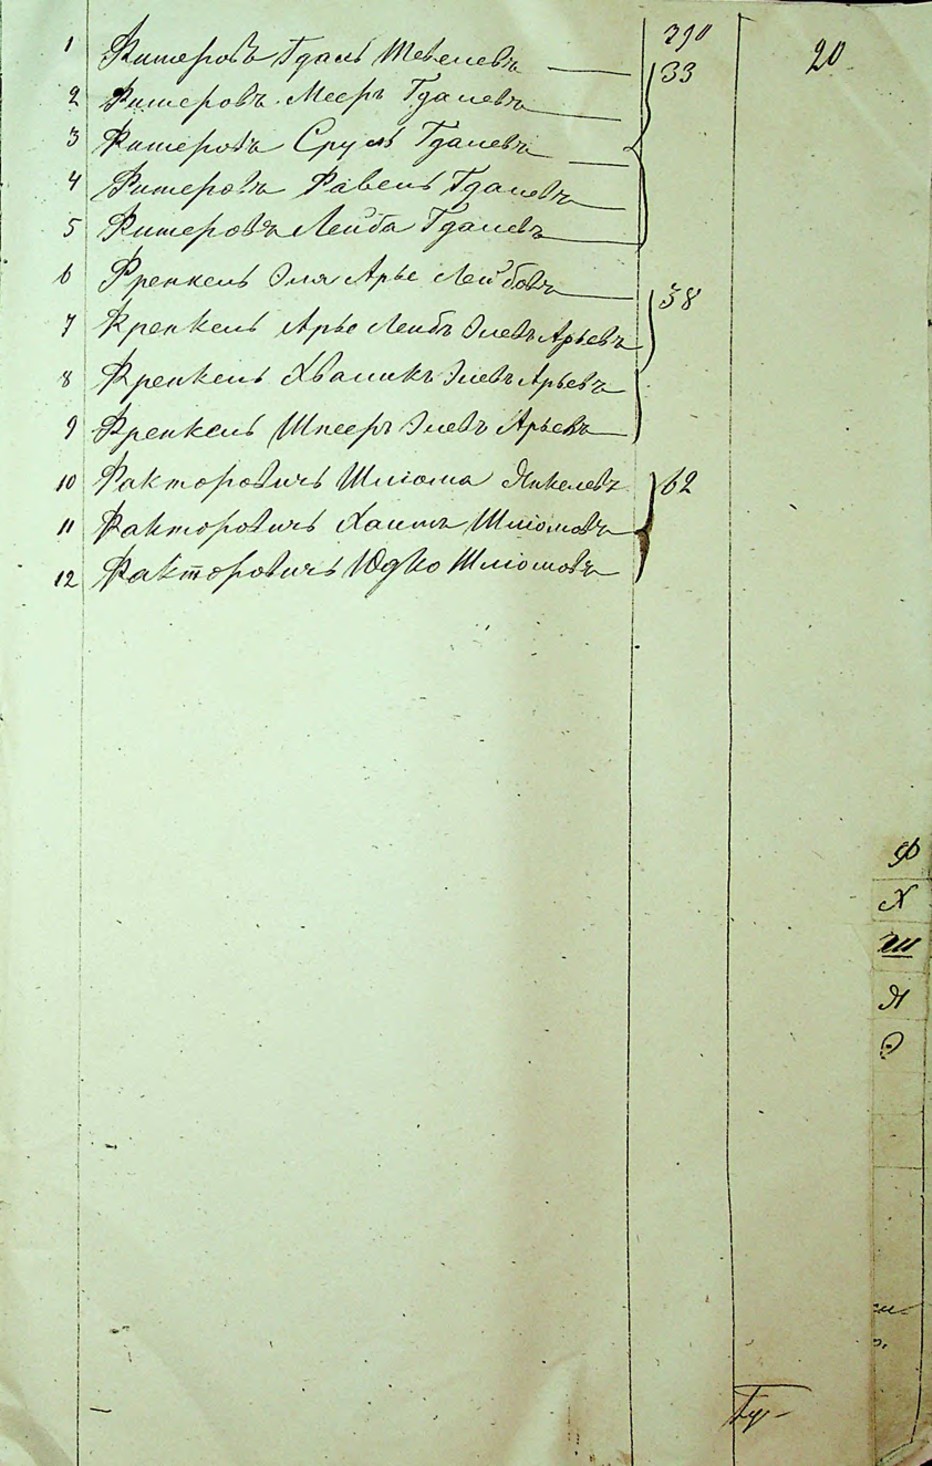 290
20
1 Фитеровъ Гдаль Шевелевъ
33
2 Фитеровъ Мееръ Гдалевъ
3 Фитеровъ Сруль Гдалевъ
4 Фитеровъ Фавель Гдалевъ
5 Фитеровъ Лейба Гдалевъ
6 Френкель Эля Арье Лейбовъ
38
7 Френкель Арье Лейбъ Элевъ Арьевъ
8 Френкель Хваликъ Элевъ Арьевъ
9 Френкель Шнееръ Элевъ Арьевъ
10 Факторовичъ Шліома Янкелевъ
62
11 Факторовичъ Хаимъ Шліомовъ
12 Факторовичъ Юдко Шліомовъ
Ф
Х
Ш
Я
Э